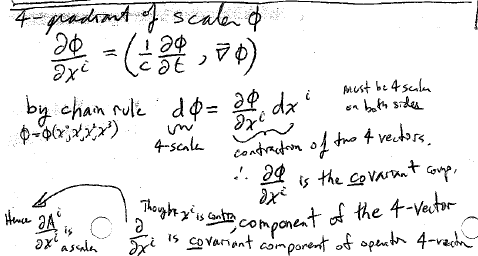 4-gradient of scalar ϕ
∂ϕ/∂xⁱ = (1/c ∂ϕ/∂t , ∇⃗ϕ)
by chain rule dϕ = ∂ϕ/∂xⁱ dxⁱ must be 4 scalar on both sides
ϕ=ϕ(x⁰,x¹,x²,x³)
4-scalar contraction of two 4 vectors.
∴ ∂ϕ/∂xⁱ is the covariant comp.
Hence ∂Aⁱ/∂xⁱ is a scalar
Though xⁱ is contra, component of the 4-vector
∂/∂xⁱ is covariant component of operator 4-vector